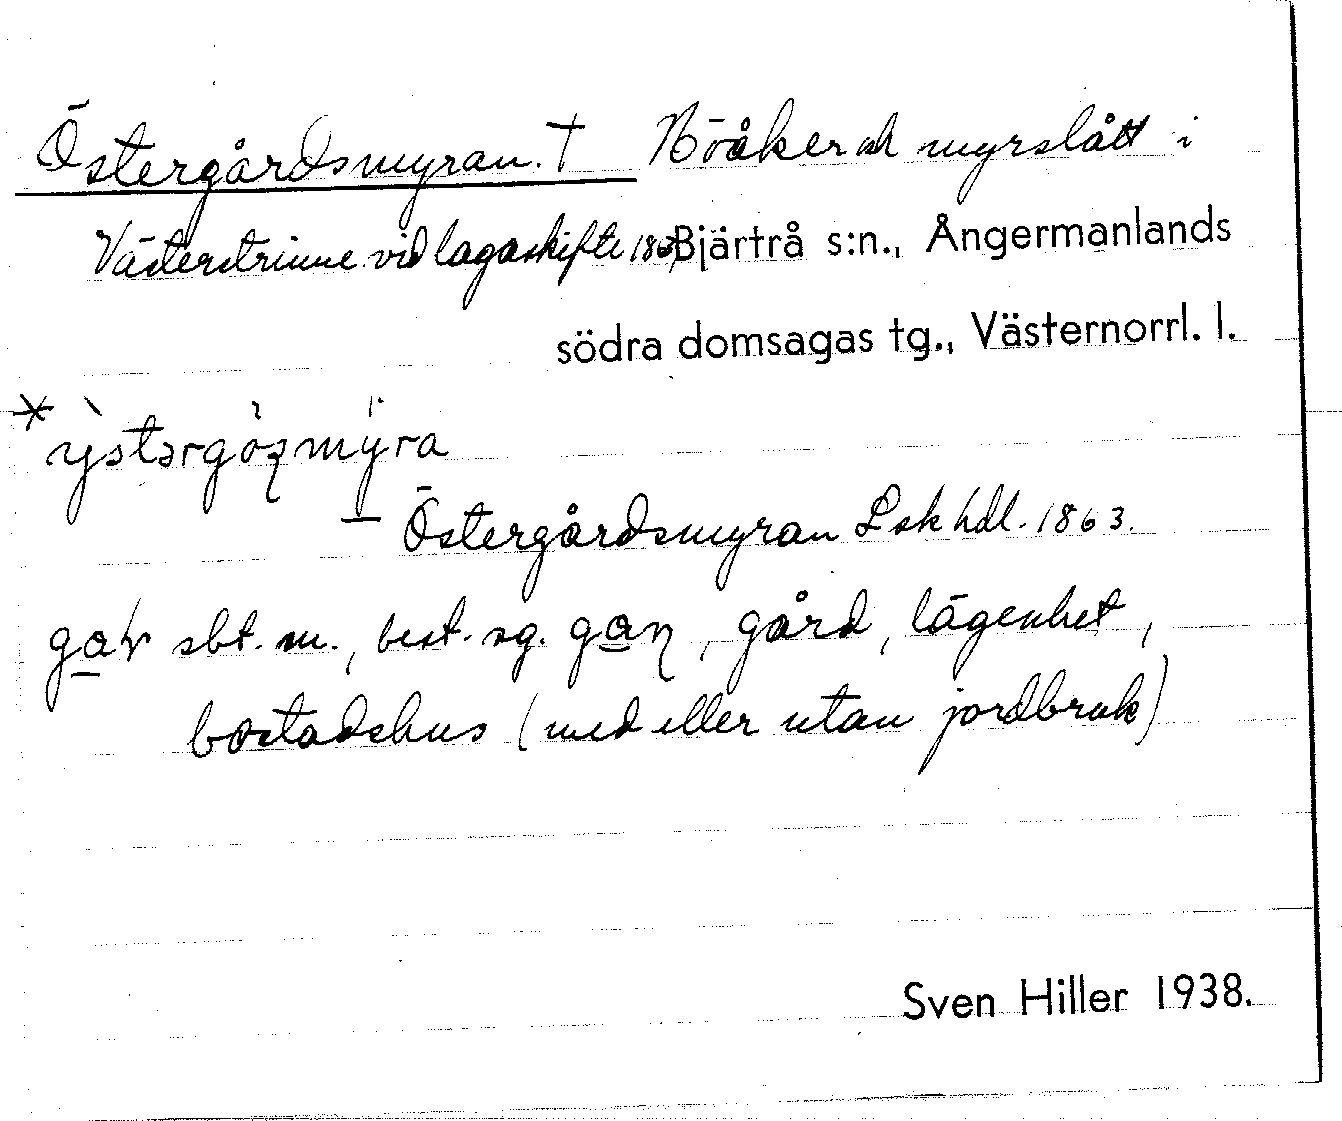 Östergårdsmyran. † Höåker och myrslått i
Västerstrinne vid lagaskifte 1863, Bjärtrå s:n., Ångermanlands
södra domsagas tg., Västernorrl. l.
* ỳstərgòɳmýra
— Östergårdsmyran Lsk hdl. 1863.
sbt. m., best. sg. gaɳ, gård, lägenhet,
bostadshus (med eller utan jordbruk)
Sven Hiller 1938.